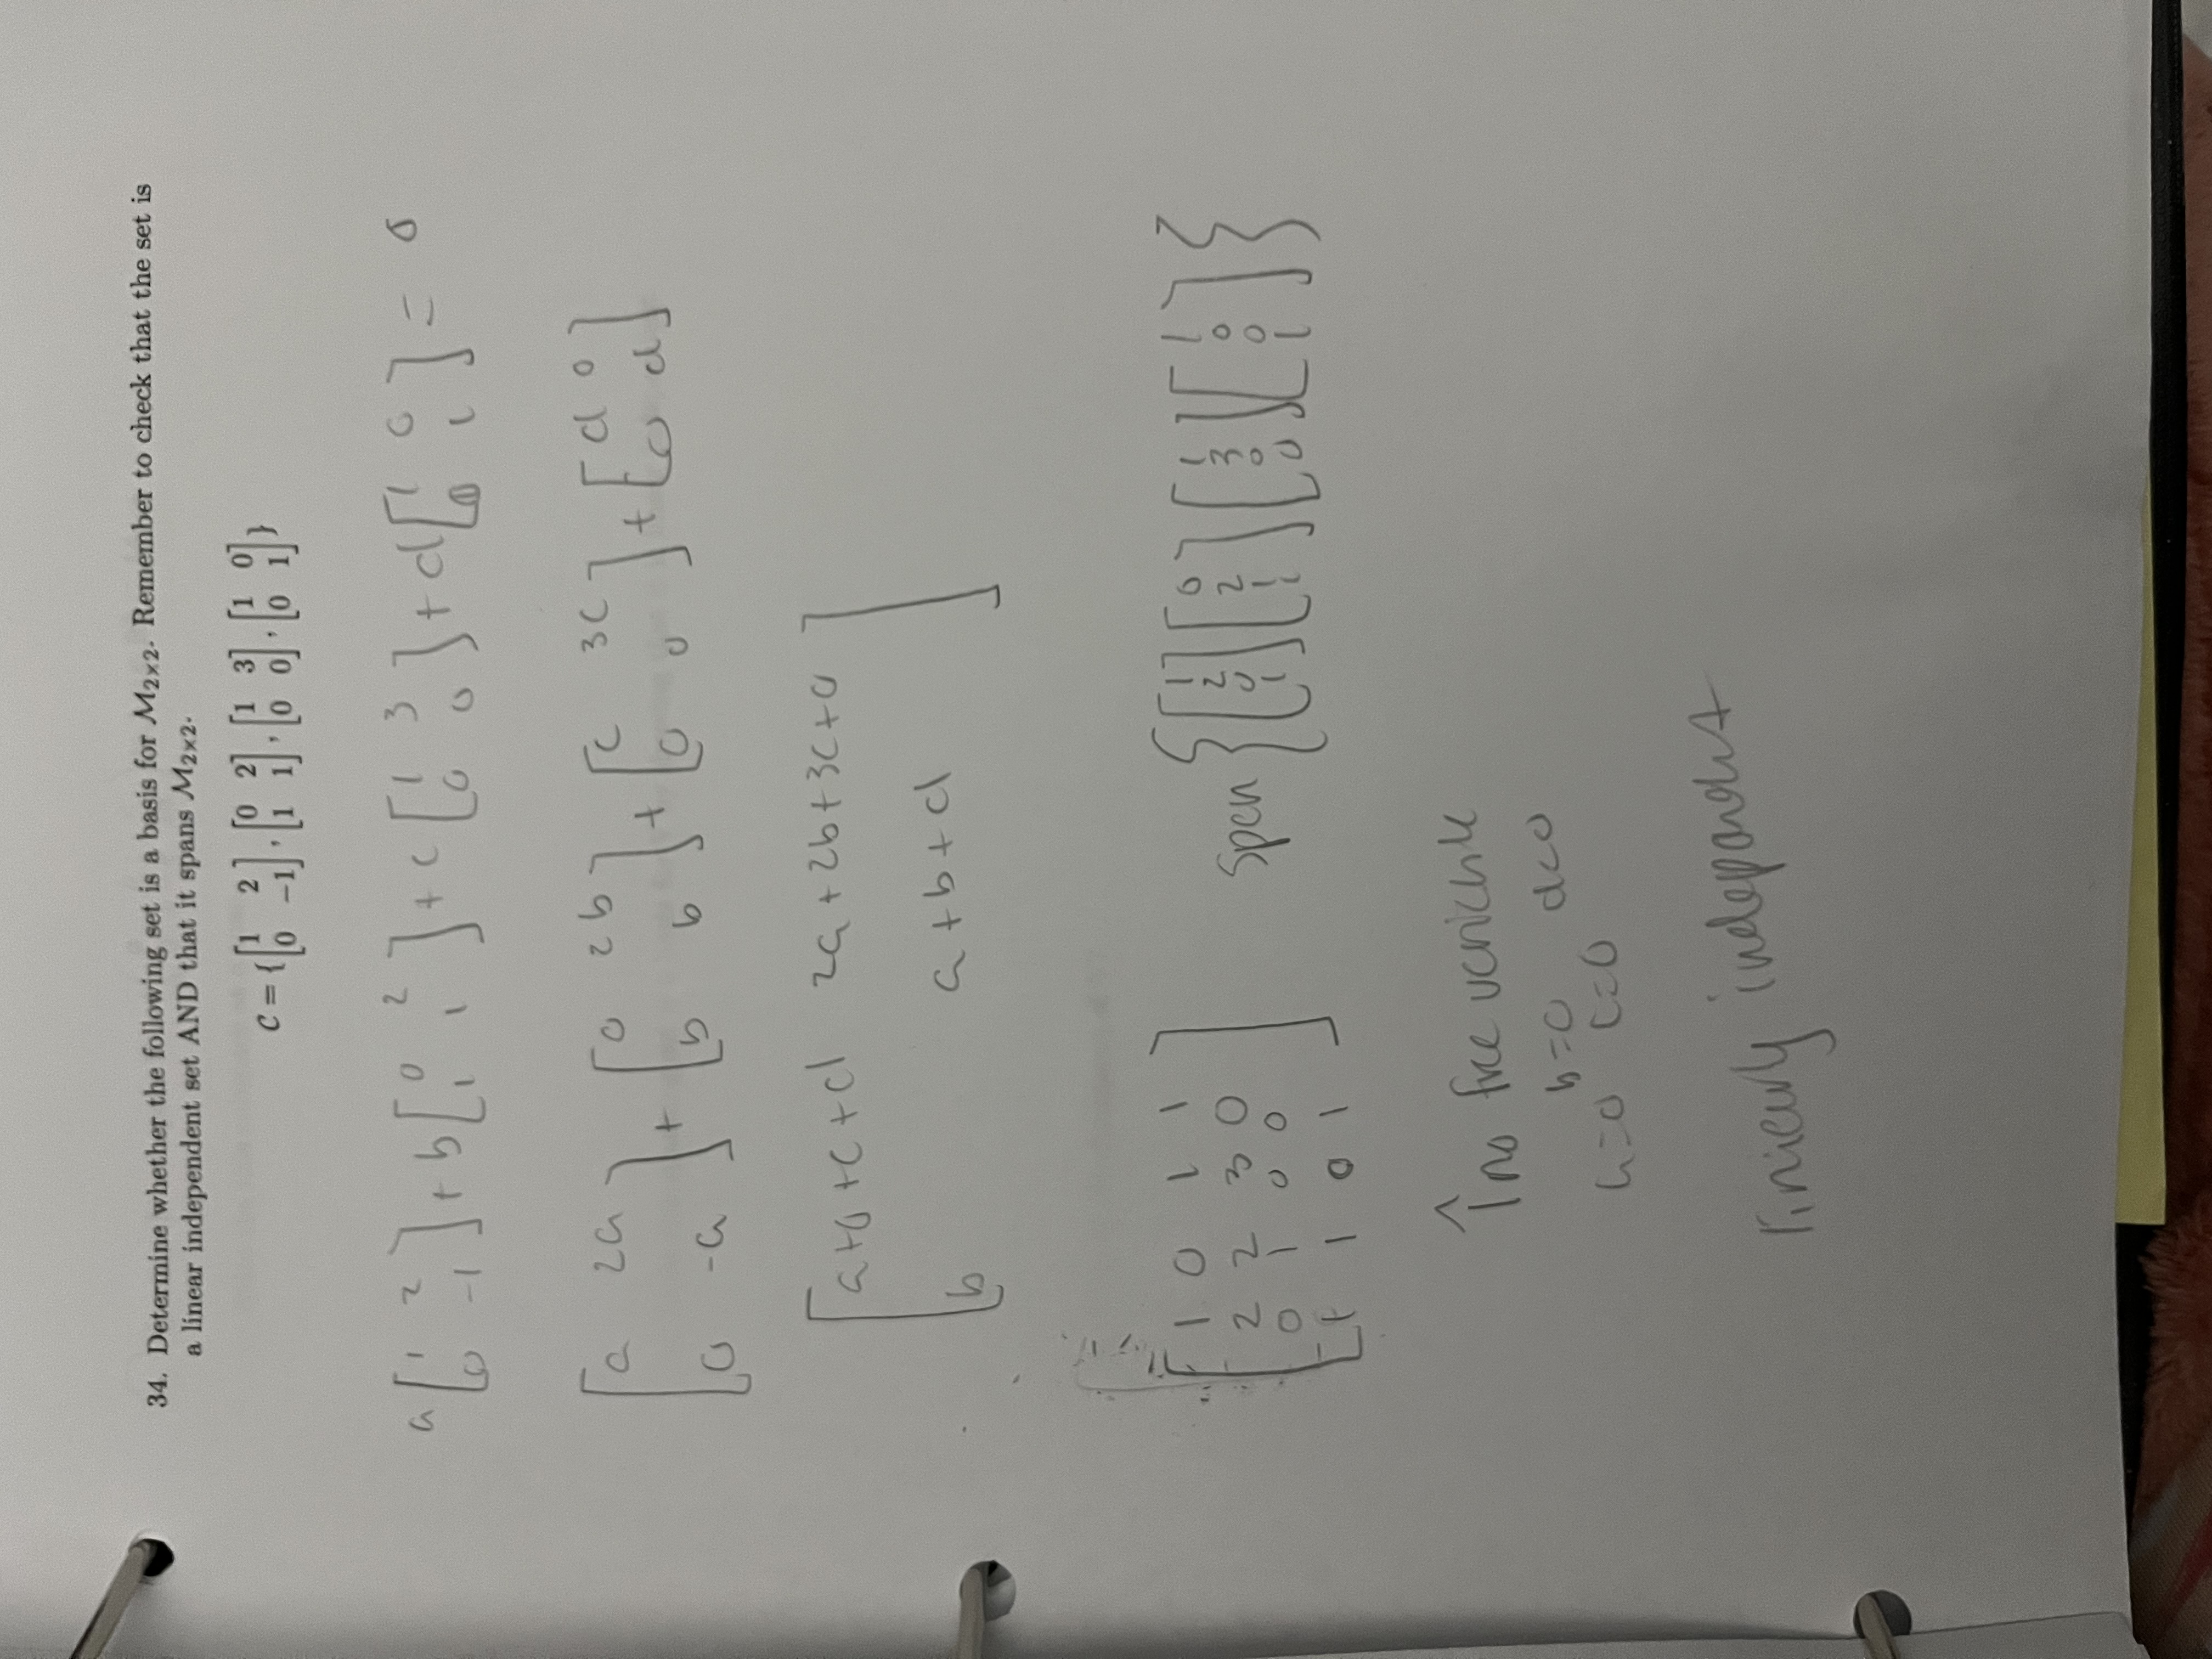 34. Determine whether the following set is a basis for M2×2. Remember to check that the set is
a linear independent set AND that it spans M2×2.
C = {[1 2; 0 −1], [0 2; 1 1], [1 3; 0 0], [1 0; 0 1]}
a[1 2; 0 -1] + b[0 2; 1 1] + c[1 3; 0 0] + d[1 0; 0 1] = 0
[a 2a; 0 -a] + [0 2b; b b] + [c 3c; 0 0] + [d 0; 0 d]
[a+0+c+d 2a+2b+3c+0; b a+b+d]
[1 0 1 1; 2 2 3 0; 0 1 0 0; 1 1 0 1]
Span {[1; 2; 0; 1] [0; 2; 1; 1] [1; 3; 0; 0] [1; 0; 0; 1]}
↑ no free variable
b=0 d=0
a=0 c=0
liniearly independent